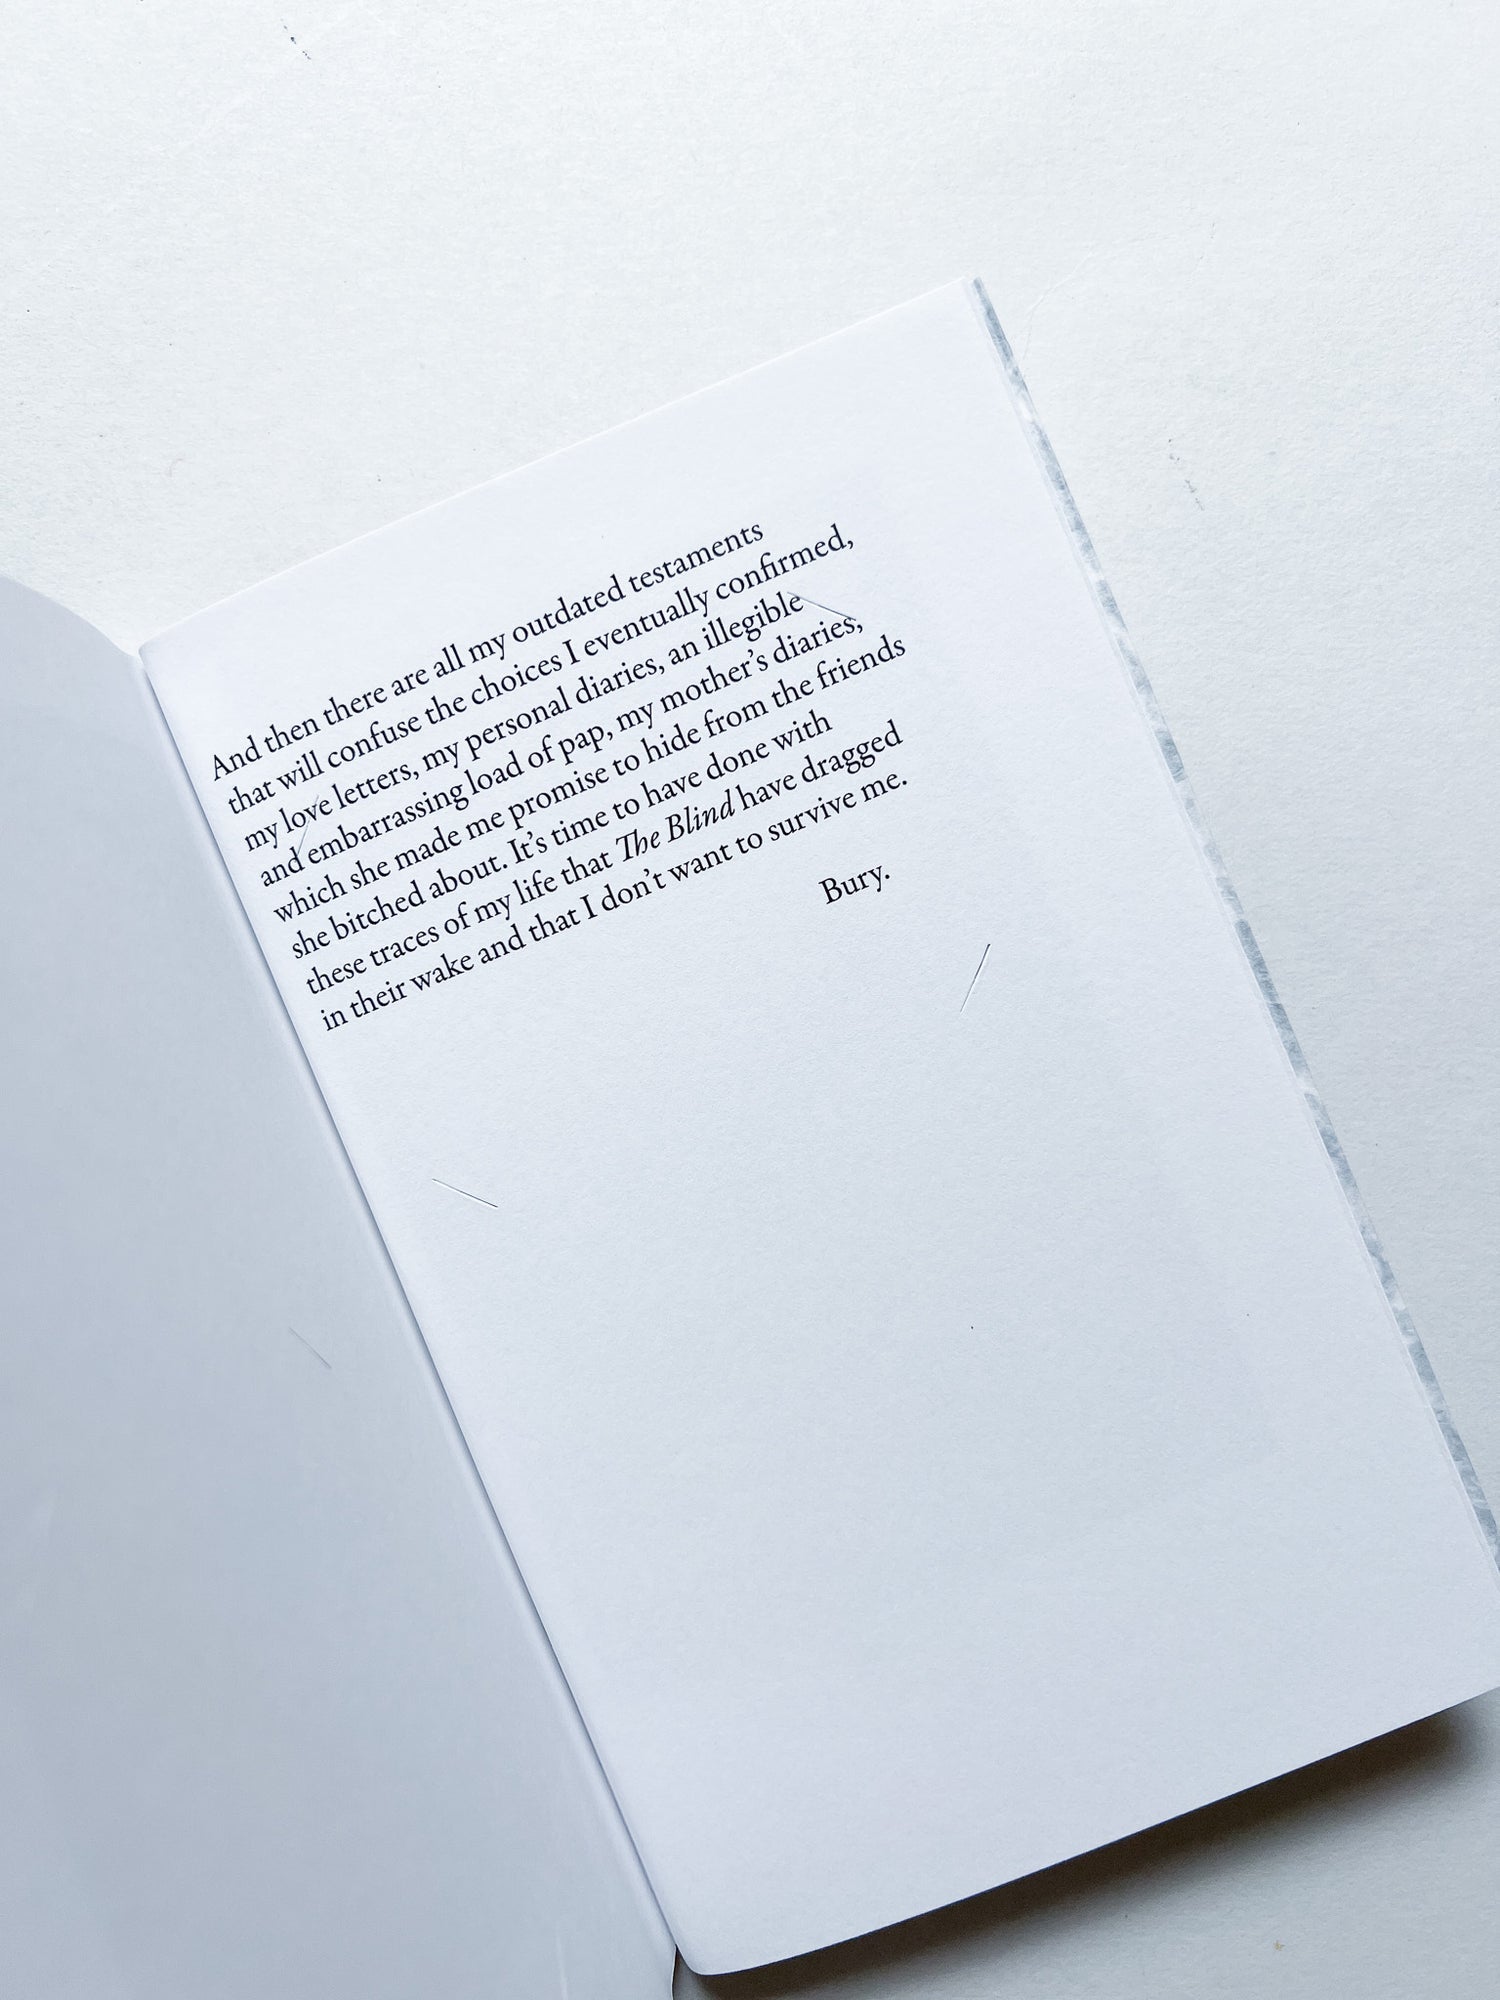 And then there are all my outdated testaments
that will confuse the choices I eventually confirmed,
my love letters, my personal diaries, an illegible
and embarrassing load of pap, my mother’s diaries,
which she made me promise to hide from the friends
she bitched about. It’s time to have done with
these traces of my life that The Blind have dragged
in their wake and that I don’t want to survive me.
Bury.